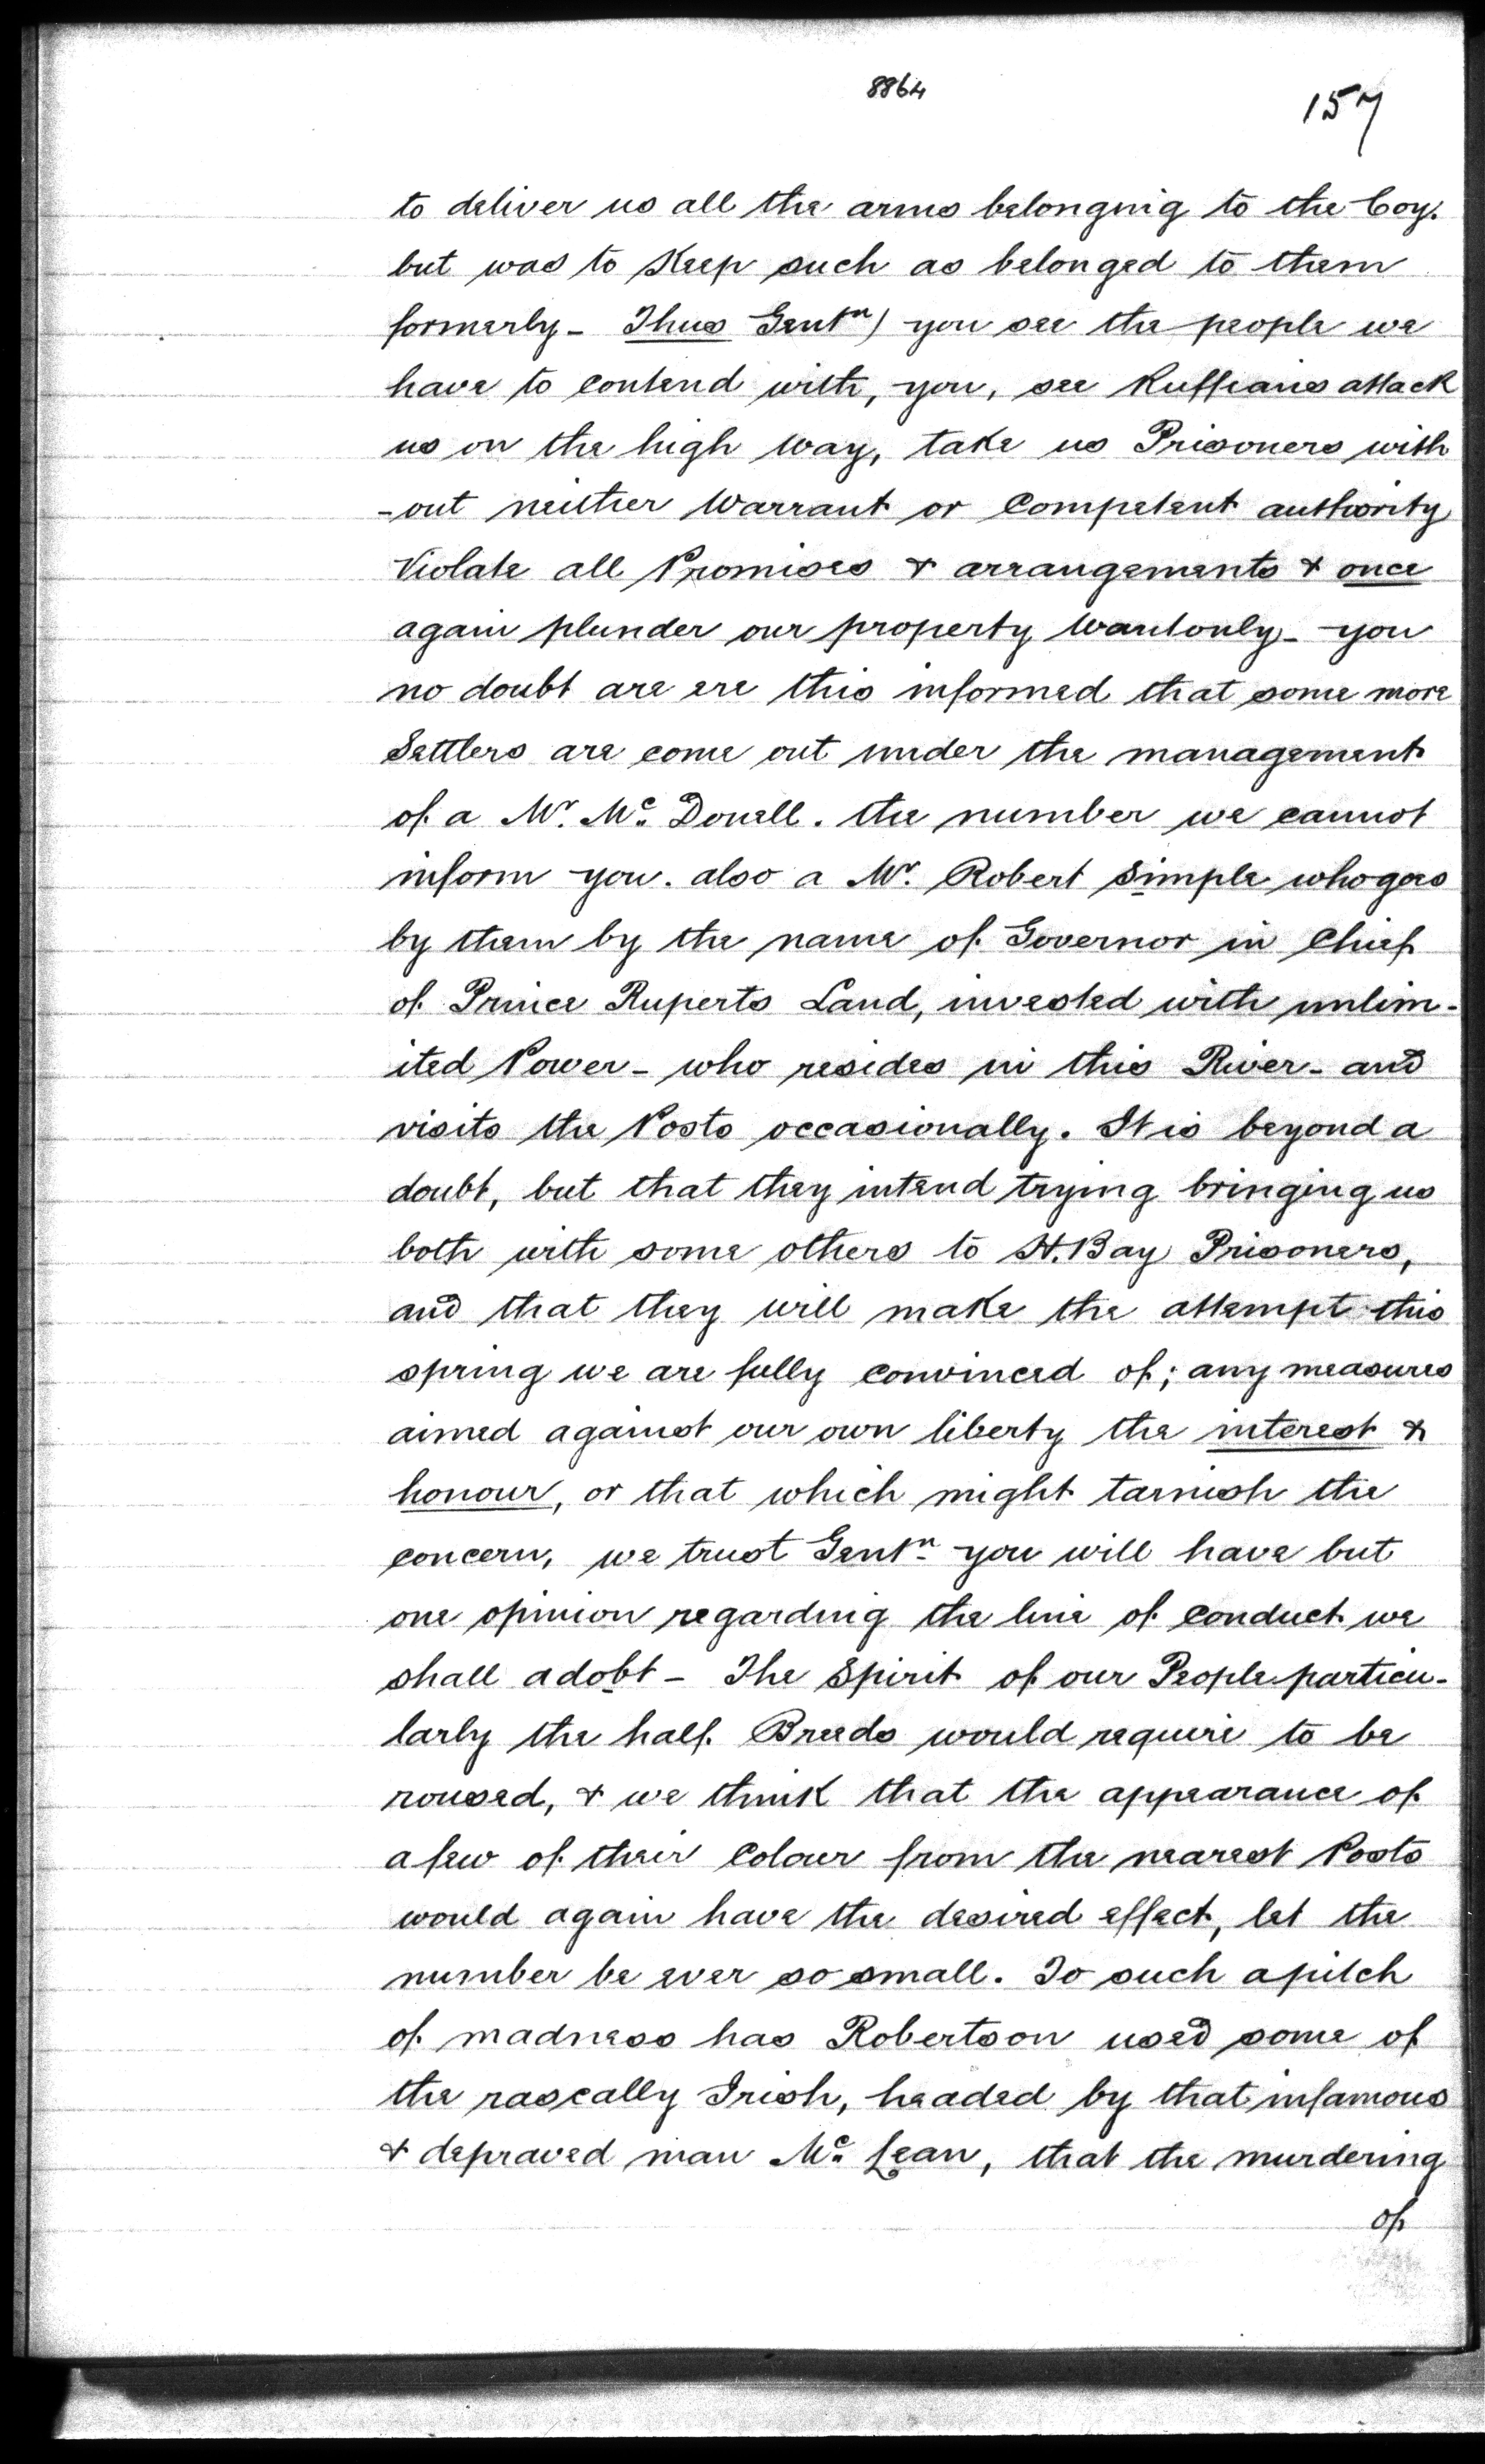 8864
157
to deliver us all the arms belonging to the Coy.
but was to Keep such as belonged to them
formerly - Thus Gentn) you see the people we
have to contend with, you, see Ruffians attack
us on the high way, take us Prisoners with
-out neither Warrant or Competent authority
Violate all Promises & arrangements & once
again plunder our property Wantonly - you
no doubt are ere this informed that some more
Settlers are come out under the management
of a Mr. Mc. Donell. the number we cannot
inform you. also a Mr. Robert Simple who goes
by them by the name of Governor in Chief
of Prince Ruperts Land, invested with unlim-
ited Power - who resides in this River - and
visits the Posts occasionally. It is beyond a
doubt, but that they intend trying bringing us
both with some others to H. Bay Prisoners,
and that they will make the attempt this
spring we are fully convinced of; any measures
aimed against our own liberty the interest &
honour, or that which might tarnish the
concern, we trust Gentn. you will have but
one opinion regarding the line of conduct we
shall adobt - The Spirit of our People particu-
larly the half Breeds would require to be
roused, & we think that the appearance of
a few of their Colour from the nearest Posts
would again have the desired effect, let the
number be ever so small. To such a pitch
of madness has Robertson used some of
the rascally Irish, headed by that infamous
& depraved man Mc. Lean, that the murdering
of